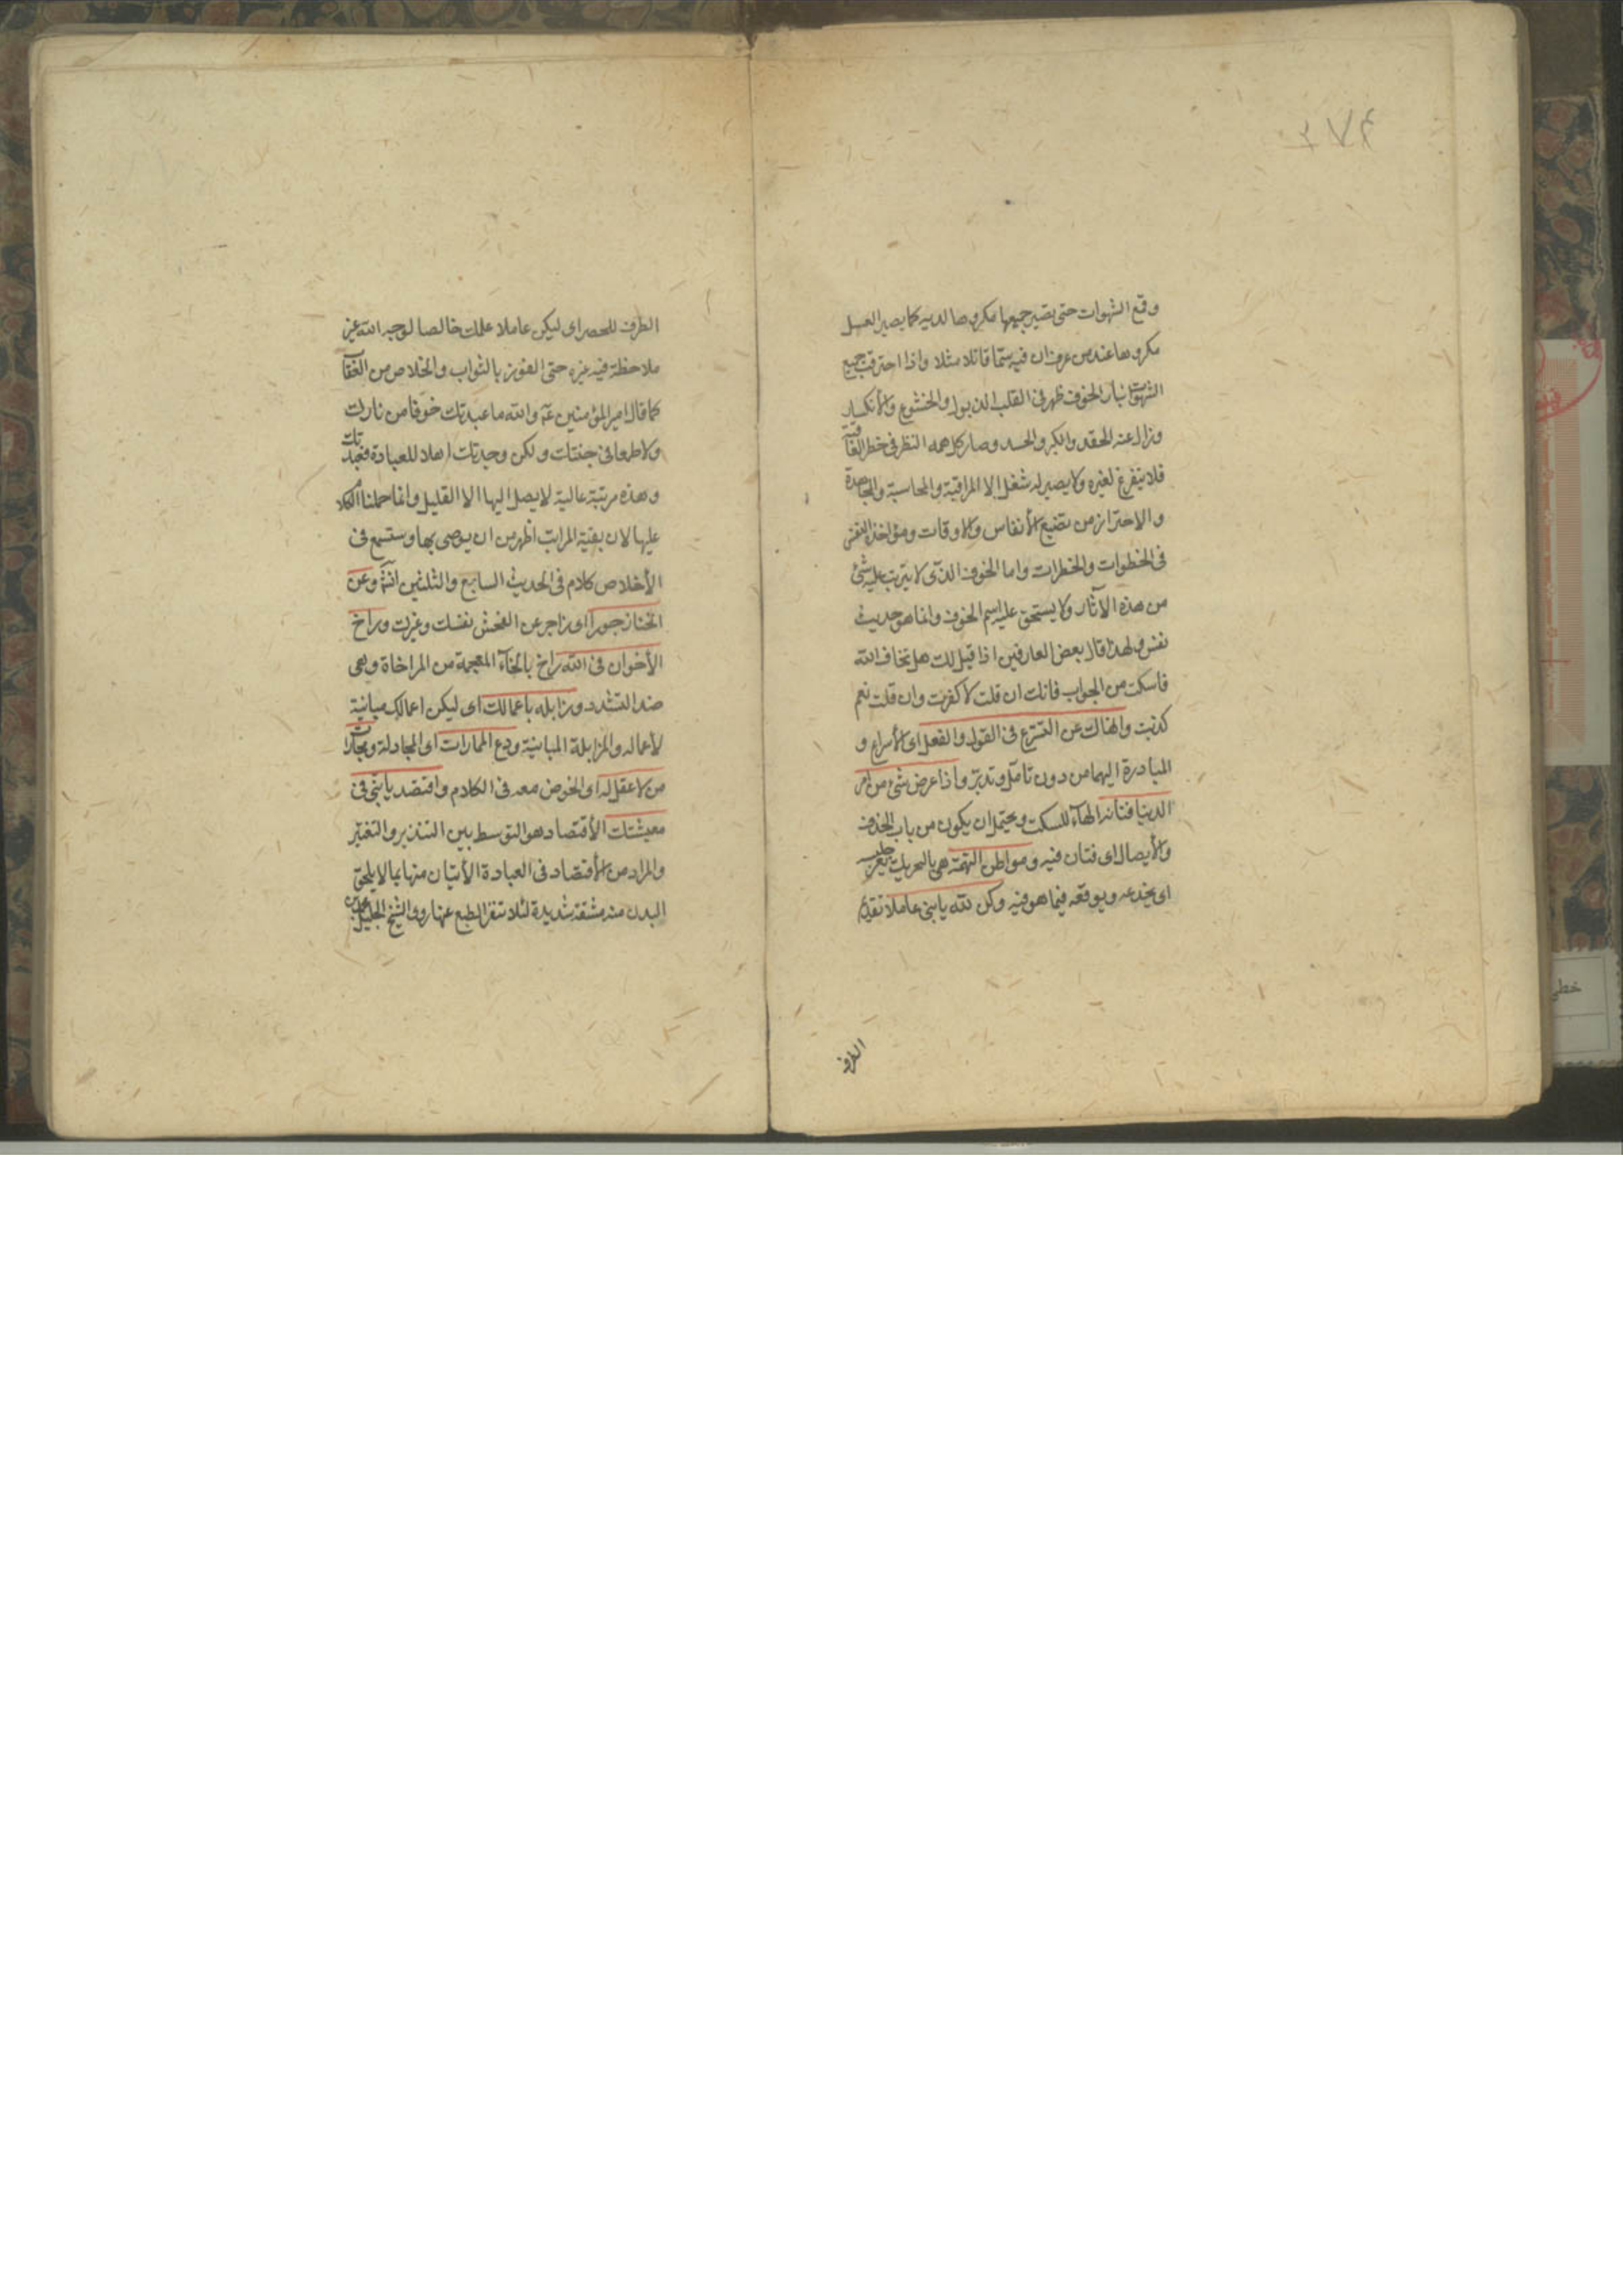 وقمع الشهوات حتى يصير جميعها مكروها لديه كما يصير العسل
مكروها عند من عرف ان فيه سمّا قاتلا مثلا واذا احترقت جميع
الشهوات بنار الخوف ظهر فى القلب الذبول والخشوع والأنكسار
وزال عنه الحقد والكبر والحسد وصار كل همه النظر فى خطر العاقبة
فلا يتفرغ لغيره ولا يصير له شغل إلا المراقبة والمحاسبة والمجاهدة
والاحتراز من تضيع الأنفاس والاوقات ومؤاخذة النفس
فى الخطوات والخطرات واما الخوف الذى لا يترتب عليه شئ
من هذه الآثار ولا يستحق عليه اسم الخوف وانما هو حديث
نفس ولهذا قال بعض العارفين اذا قيل لك هل تخاف الله
فاسكت من الجواب فانك ان قلت لا كفرت وان قلت نعم
كذبت وانهاك عن التسرع فى القول والفعل اى الأسراع و
المبادرة اليهما من دون تامّل وتدبّر واذا عرض شئ من امر
الدنيا فتانه الهاء للسكت ويحتمل ان يكون من باب الحذف
والأيصال اى فتان فيه ومواطن التهمة هى بالتحريك يغر جليسه
اى يخدعه ويوقعه فيما هو فيه وكن لله يا بنى عاملا تقديم
الظرف
الظرف للحصر اى ليكن عاملا عملك خالصا لوجه الله عز
ملاحظة فيه غيره حتى الفوز بالثواب والخلاص من العقاب
كما قال امير المؤمنين عم والله ما عبدتك خوفا من نارك
ولا طمعا فى جنتك ولكن وجدتك اهلا للعبادة فعبدتك
وهذه مرتبة عالية لا يصل اليها الا القليل وانما حملنا الكلام
عليها لان بقية المراتب اظهر من ان يوصى بها وستسمع فى
الأخلاص كلام فى الحديث السابع والثلثين انشٓ وعن
الخنا زجورا اى زاجر عن الفحش نفسك وغيرك وراخ
الأخوان فى الله راخ بالخآء المعجمة من المراخاة وهى
ضد التشدد وزابله باعمالك اى ليكن اعمالك مباينة
لأعماله والمزابلة المباينة ودع الممارات اى المجادلة ومجارات
من لا عقل له اى الخوض معه فى الكلام واقتصد يا بنّى فى
معيشتك الأقتصاد هو التوسط بين التبذير والتقتير
والمراد من الأقتصاد فى العبادة الأتيان منها بما لا يلحق
البدن منه مشقة شديدة لئلا تنفر الطبع عنها روى الشيخ الجليل